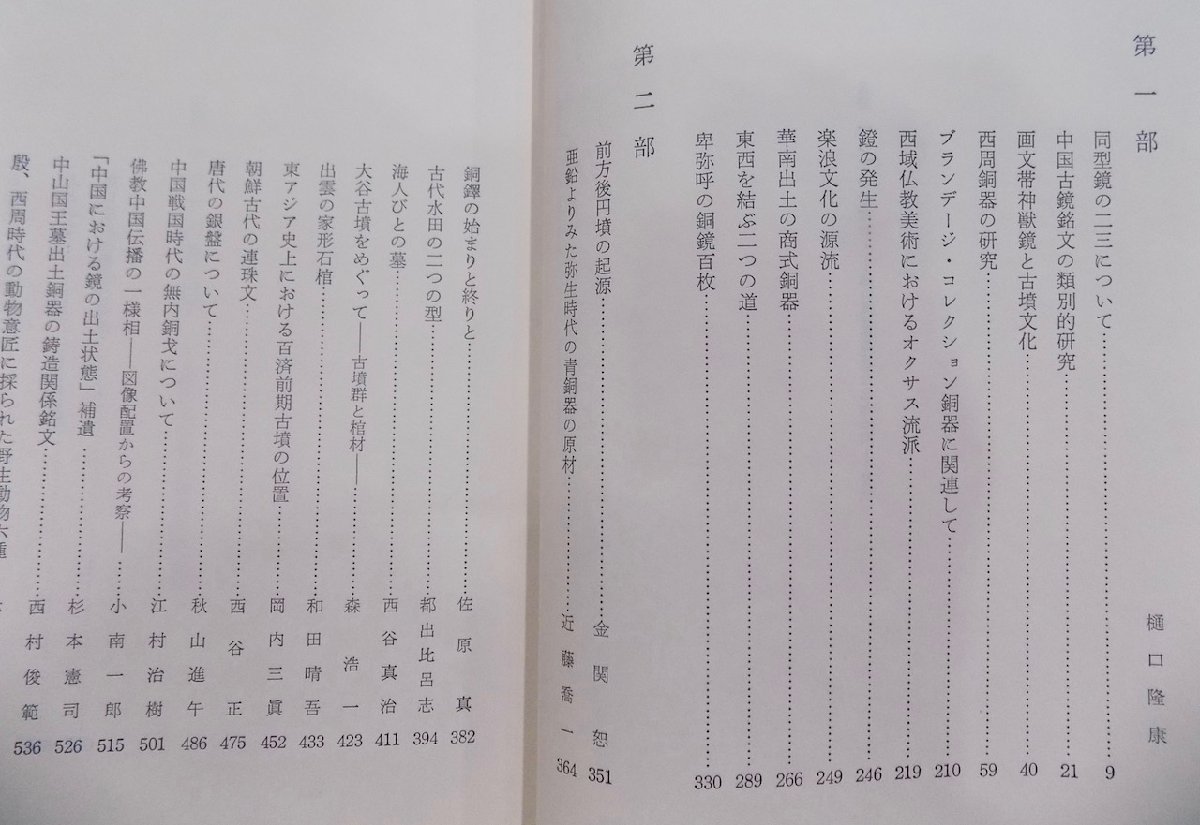 第一部
樋口隆康
同型鏡の二三について……9
中国古鏡銘文の類別的研究……21
画文帯神獣鏡と古墳文化……40
西周銅器の研究……59
ブランデージ・コレクション銅器に関連して……210
西域仏教美術におけるオクサス流派……219
鐙の発生……246
楽浪文化の源流……249
華南出土の商式銅器……266
東西を結ぶ二つの道……289
卑弥呼の銅鏡百枚……330
第二部
前方後円墳の起源……金関恕 351
亜鉛よりみた弥生時代の青銅器の原材……近藤喬一 364
銅鐸の始まりと終りと……佐原真 382
古代水田の二つの型……都出比呂志 394
海人びとの墓……西谷真治 411
大谷古墳をめぐって――古墳群と棺材――……森浩一 423
出雲の家形石棺……和田晴吾 433
東アジア史上における百済前期古墳の位置……岡内三眞 452
朝鮮古代の連珠文……西谷正 475
唐代の銀盤について……秋山進午 486
中国戦国時代の無内銅戈について……江村治樹 501
佛教中国伝播の一様相――図像配置からの考察――……小南一郎 515
「中国における鏡の出土状態」補遺……杉本憲司 526
中山国王墓出土銅器の鋳造関係銘文……西村俊範 536
殷、西周時代の動物意匠に採られた野生動物六種